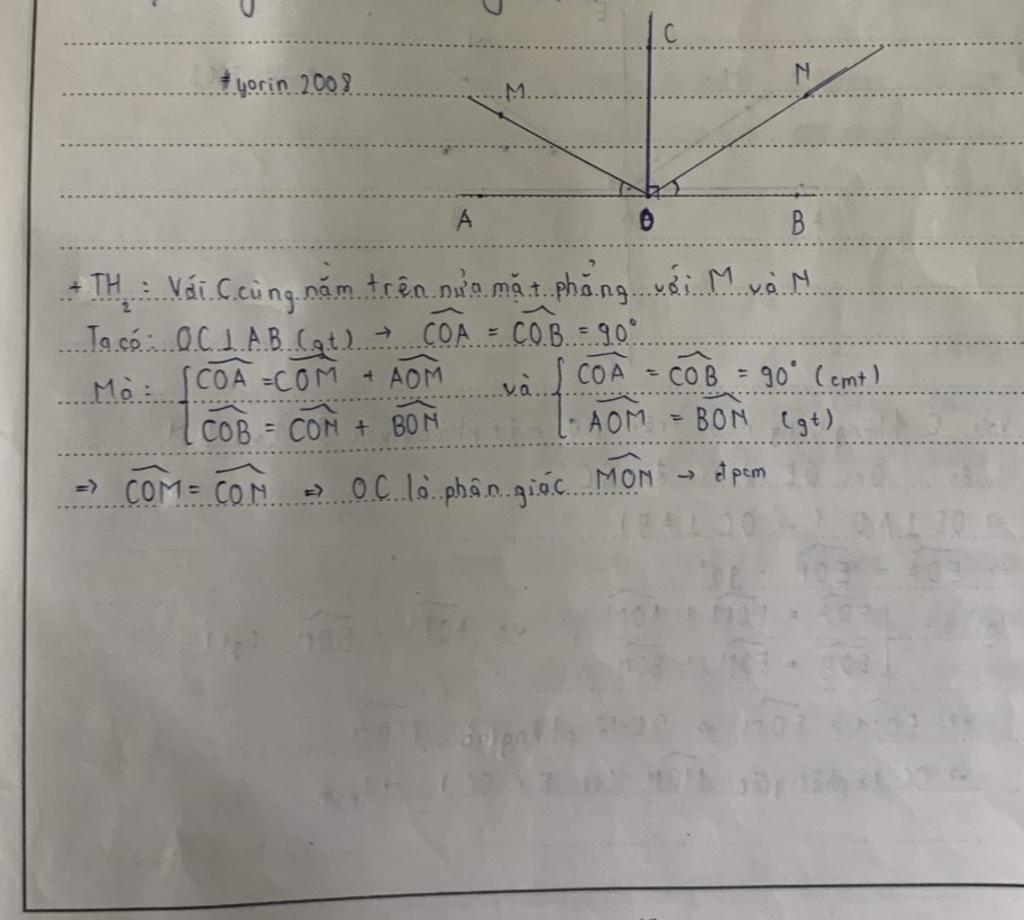 C
#yorin 2008
M
N
A
O
B
+ TH₂ : Với C cùng nằm trên nửa mặt phẳng với M và N
Ta có: OC ⊥ AB (gt) → \widehat{COA} = \widehat{COB} = 90°
Mà: { \widehat{COA} = \widehat{COM} + \widehat{AOM} và { \widehat{COA} = \widehat{COB} = 90° (cmt)
\widehat{COB} = \widehat{CON} + \widehat{BON} \widehat{AOM} = \widehat{BON} (gt)
=> \widehat{COM} = \widehat{CON} => OC là phân giác \widehat{MON} → đpcm